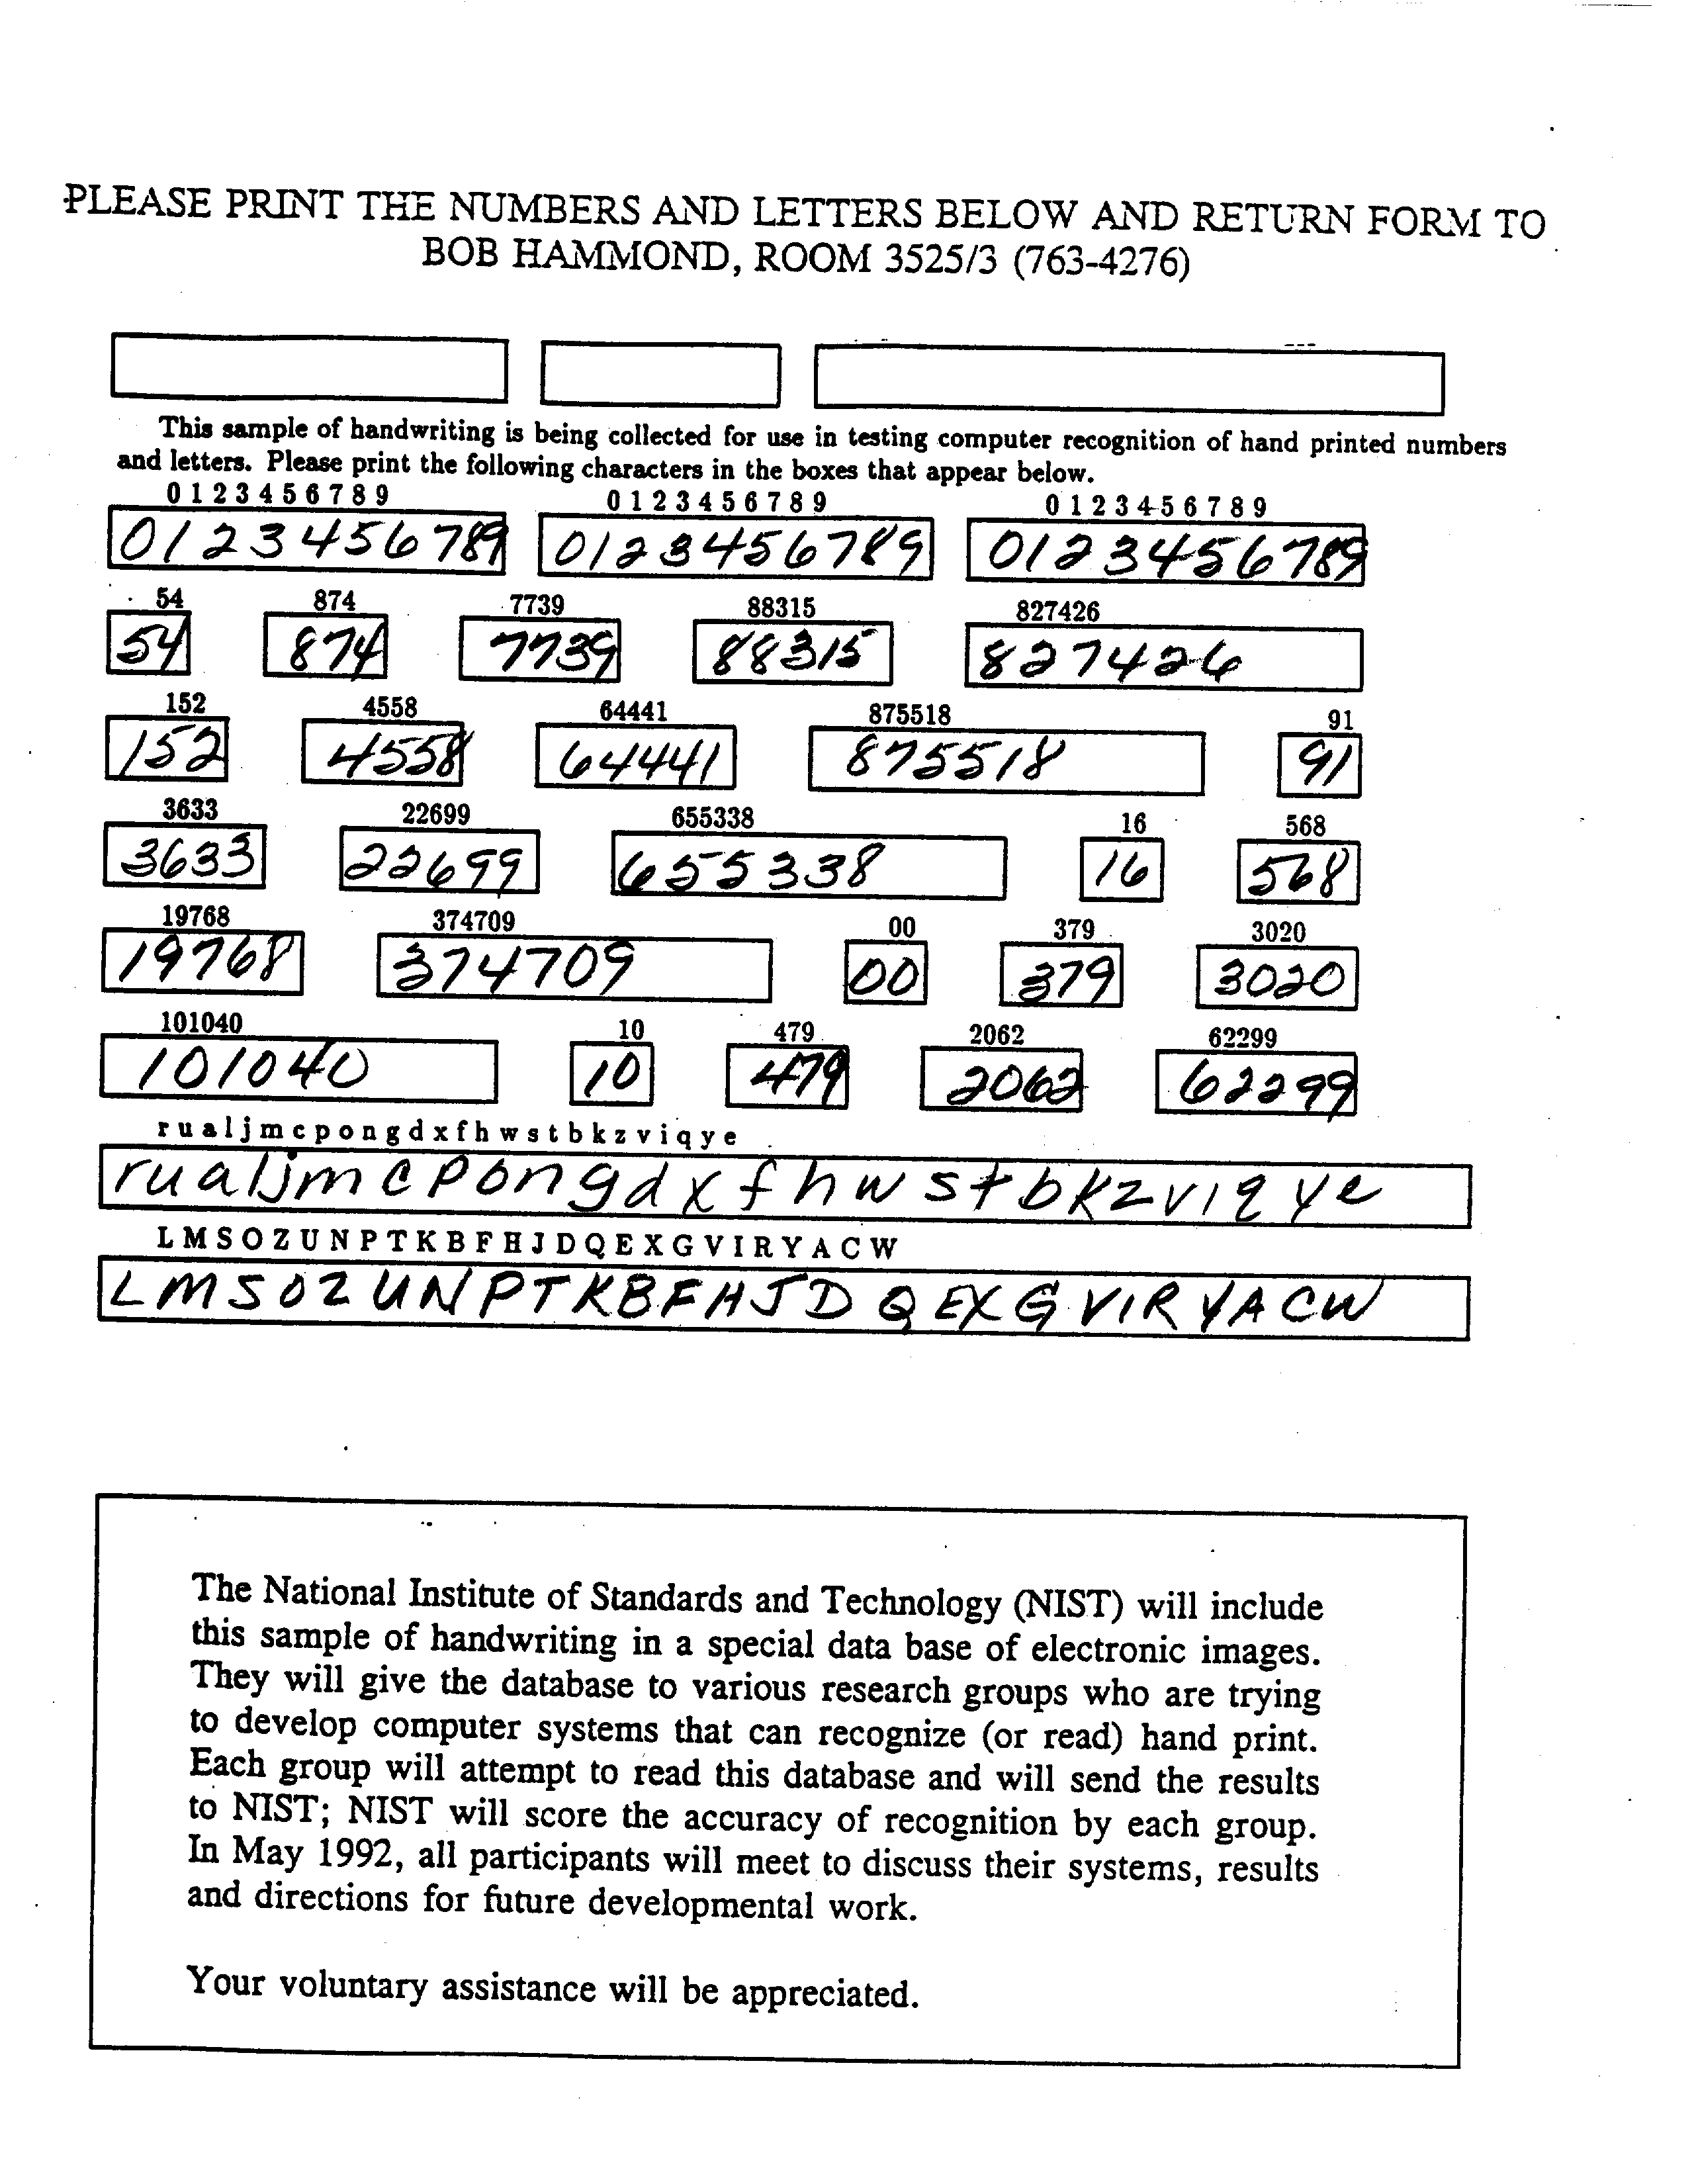 PLEASE PRINT THE NUMBERS AND LETTERS BELOW AND RETURN FORM TO
BOB HAMMOND, ROOM 3525/3 (763-4276)
This sample of handwriting is being collected for use in testing computer recognition of hand printed numbers
and letters. Please print the following characters in the boxes that appear below.
0 1 2 3 4 5 6 7 8 9 0 1 2 3 4 5 6 7 8 9 0 1 2 3 4 5 6 7 8 9
0123456789 0123456789 0123456789
54 874 7739 88315 827426
54 874 7739 88315 827426
152 4558 64441 875518 91
152 4558 64441 875518 91
3633 22699 655338 16 568
3633 22699 655338 16 568
19768 374709 00 379 3020
19768 374709 00 379 3020
101040 10 479 2062 62299
101040 10 479 2062 62299
r u a l j m c p o n g d x f h w s t b k z v i q y e
r u a l j m c p o n g d x f h w s t b k z v i q y e
L M S O Z U N P T K B F H J D Q E X G V I R Y A C W
L M S O Z U N P T K B F H J D Q E X G V I R Y A C W
The National Institute of Standards and Technology (NIST) will include
this sample of handwriting in a special data base of electronic images.
They will give the database to various research groups who are trying
to develop computer systems that can recognize (or read) hand print.
Each group will attempt to read this database and will send the results
to NIST; NIST will score the accuracy of recognition by each group.
In May 1992, all participants will meet to discuss their systems, results
and directions for future developmental work.
Your voluntary assistance will be appreciated.